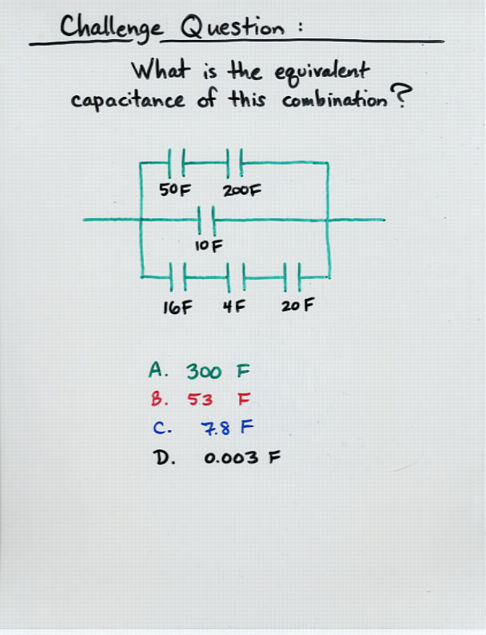 Challenge Question :
What is the equivalent
capacitance of this combination?
50F 200F
10F
16F 4F 20F
A. 300 F
B. 53 F
C. 7.8 F
D. 0.003 F